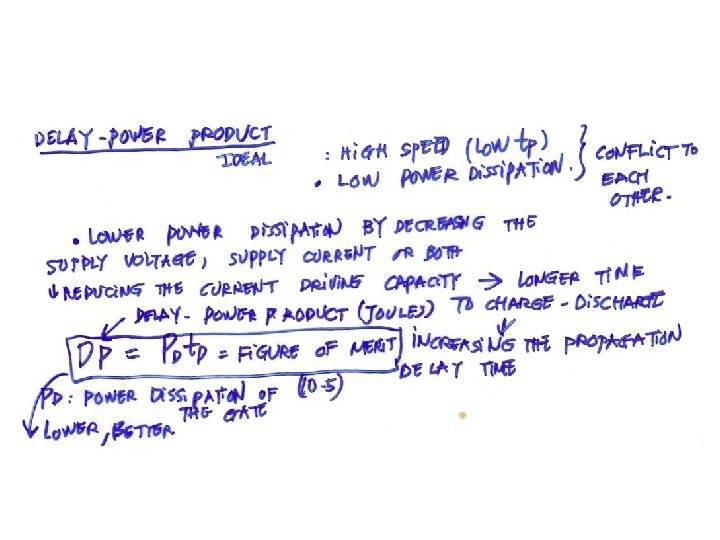 DELAY-POWER PRODUCT
IDEAL : HIGH SPEED (LOW tp) } CONFLICT TO
• LOW POWER DISSIPATION. } EACH
OTHER.
• LOWER POWER DISSIPATION BY DECREASING THE
SUPPLY VOLTAGE, SUPPLY CURRENT OR BOTH
↓ REDUCING THE CURRENT DRIVING CAPACITY → LONGER TIME
DELAY- POWER PRODUCT (JOULES) TO CHARGE - DISCHARGE
DP = PDtD = FIGURE OF MERIT INCREASING THE PROPAGATION
DELAY TIME
PD: POWER DISSIPATION OF (10-5)
THE GATE
LOWER, BETTER